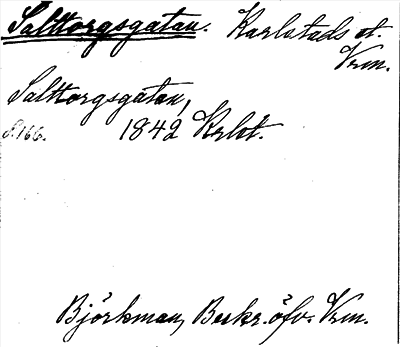 Salttorgsgatan. Karlstads st.
Vrm.
Salttorgsgatan,
S. 166. 1842 Krlst.
Björkman, Beskr. öfv. Vrm.